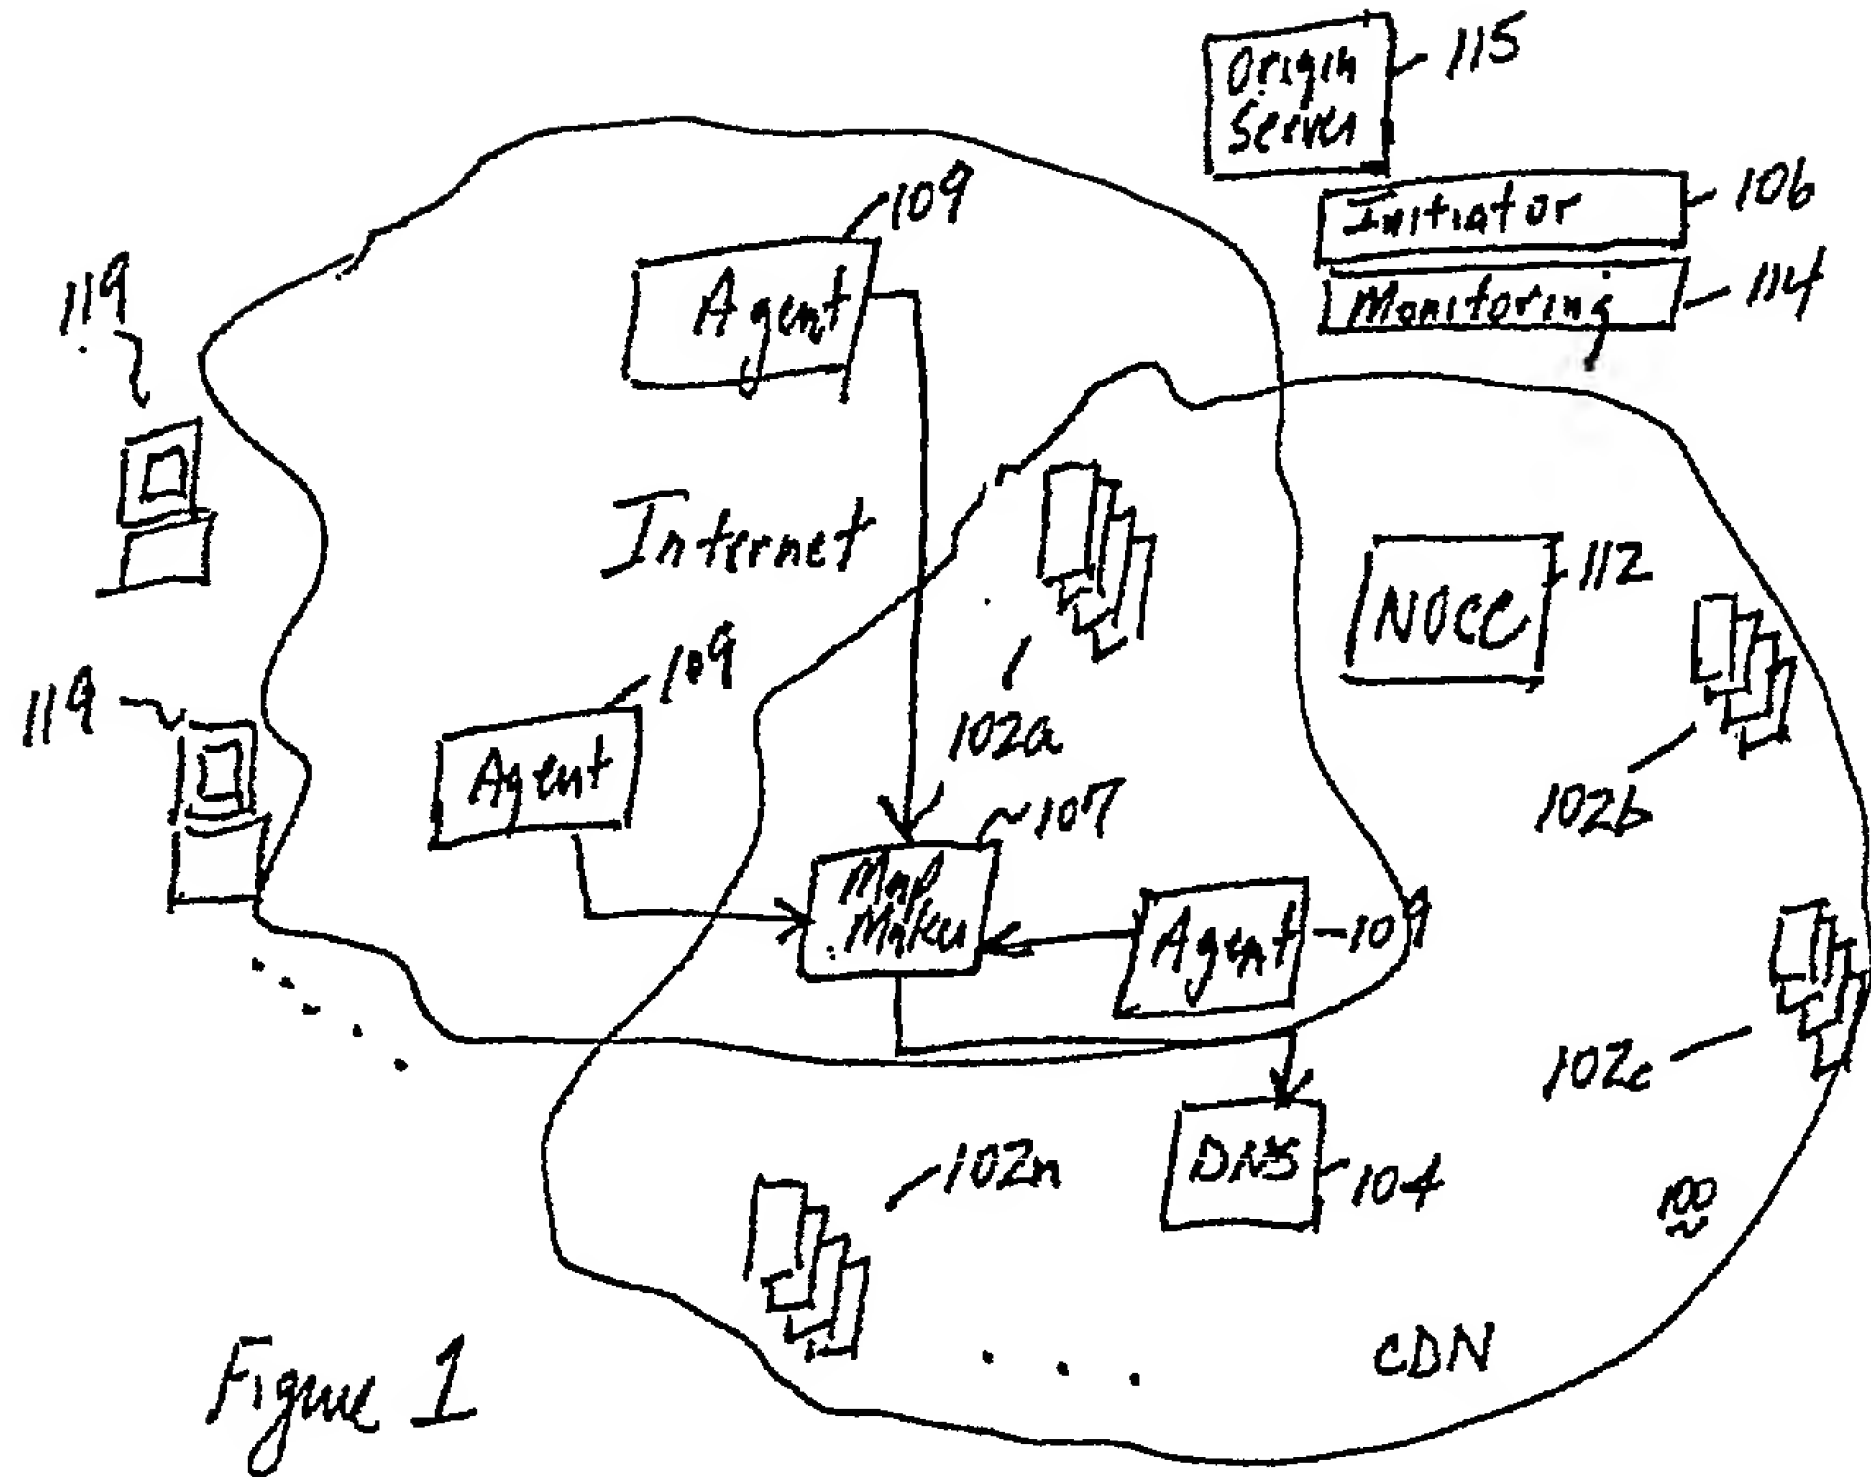 Origin
Server
115
Initiator
106
Monitoring
114
109
Agent
119
Internet
112
NOCC
109
119
Agent
102a
102b
107
Map
Maker
Agent
109
102c
DNS
104
102n
100
CDN
Figure 1